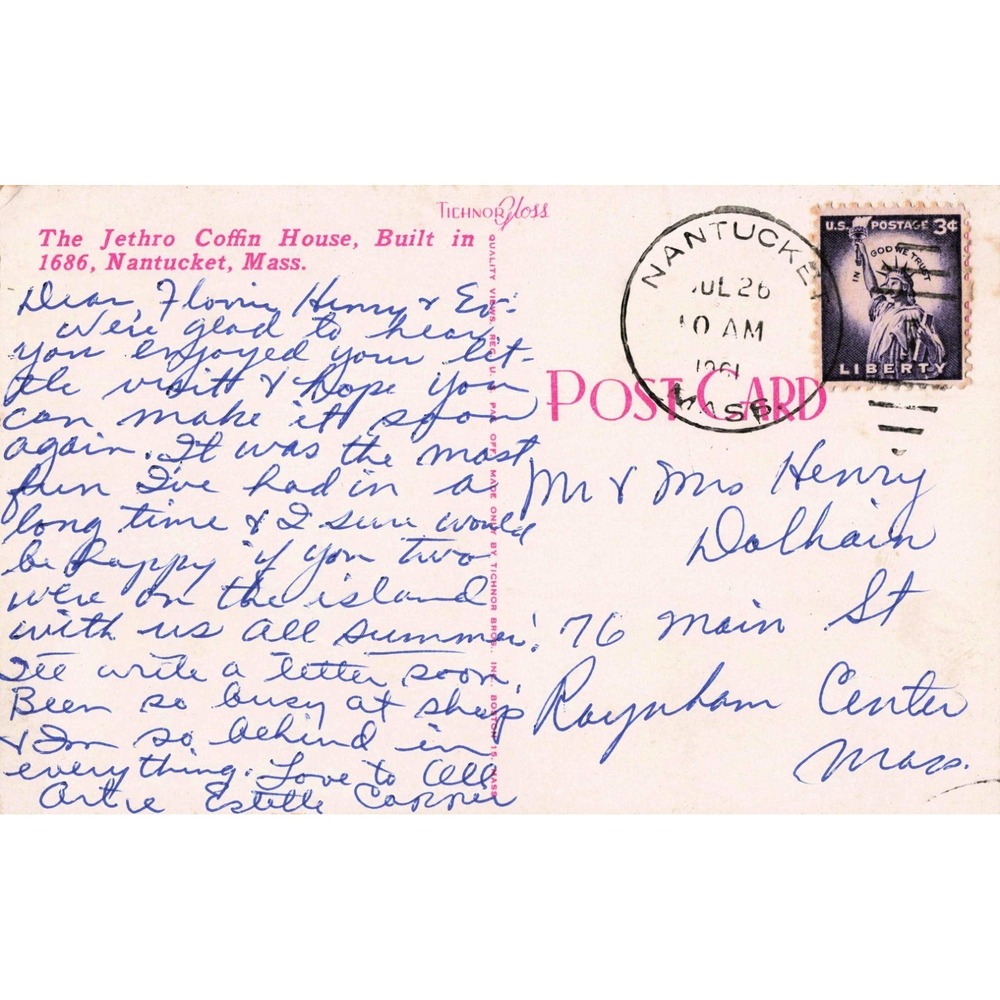 TICHNOR Gloss
The Jethro Coffin House, Built in
1686, Nantucket, Mass.
Dear Henry &
We're glad to hear
you enjoyed your lit-
tle visit & hope you
can make it soon
again. It was the most
fun I've had in a
long time & I sure would
be happy if you two
were on the island
with us all summer!
I'll write a letter soon.
Been so busy at shop
& I'm so behind in
everything. Love to All
Artie Estelle Connie
QUALITY VIEWS REG. U. S. PAT. OFF. MADE ONLY BY TICHNOR BROS., INC., BOSTON 15, MASS.
POST CARD
NANTUCKET
JUL 26
10 AM
1961
MASS.
U.S. POSTAGE 3¢
IN GOD WE TRUST
LIBERTY
Mr & Mrs Henry
76 Main St
Raynham Center
Mass.